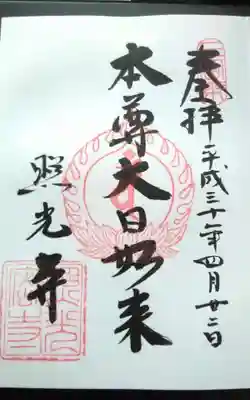 奉拝
平成三十年四月廿二日
本尊大日如来
照光寺